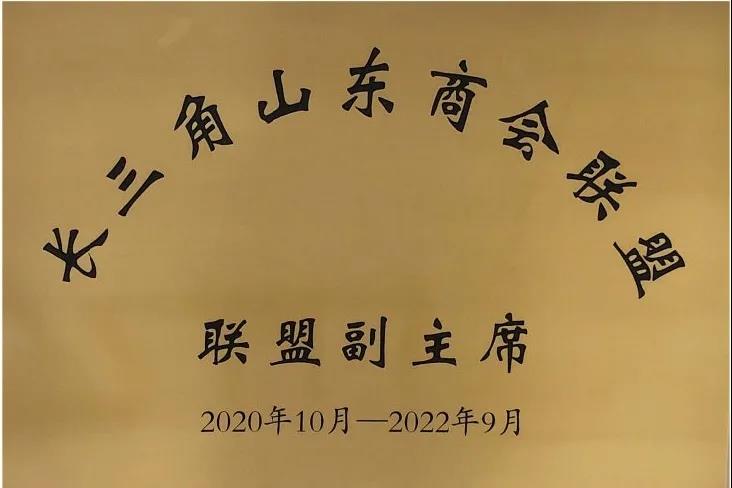 长三角山东商会联盟
联盟副主席
2020年10月—2022年9月